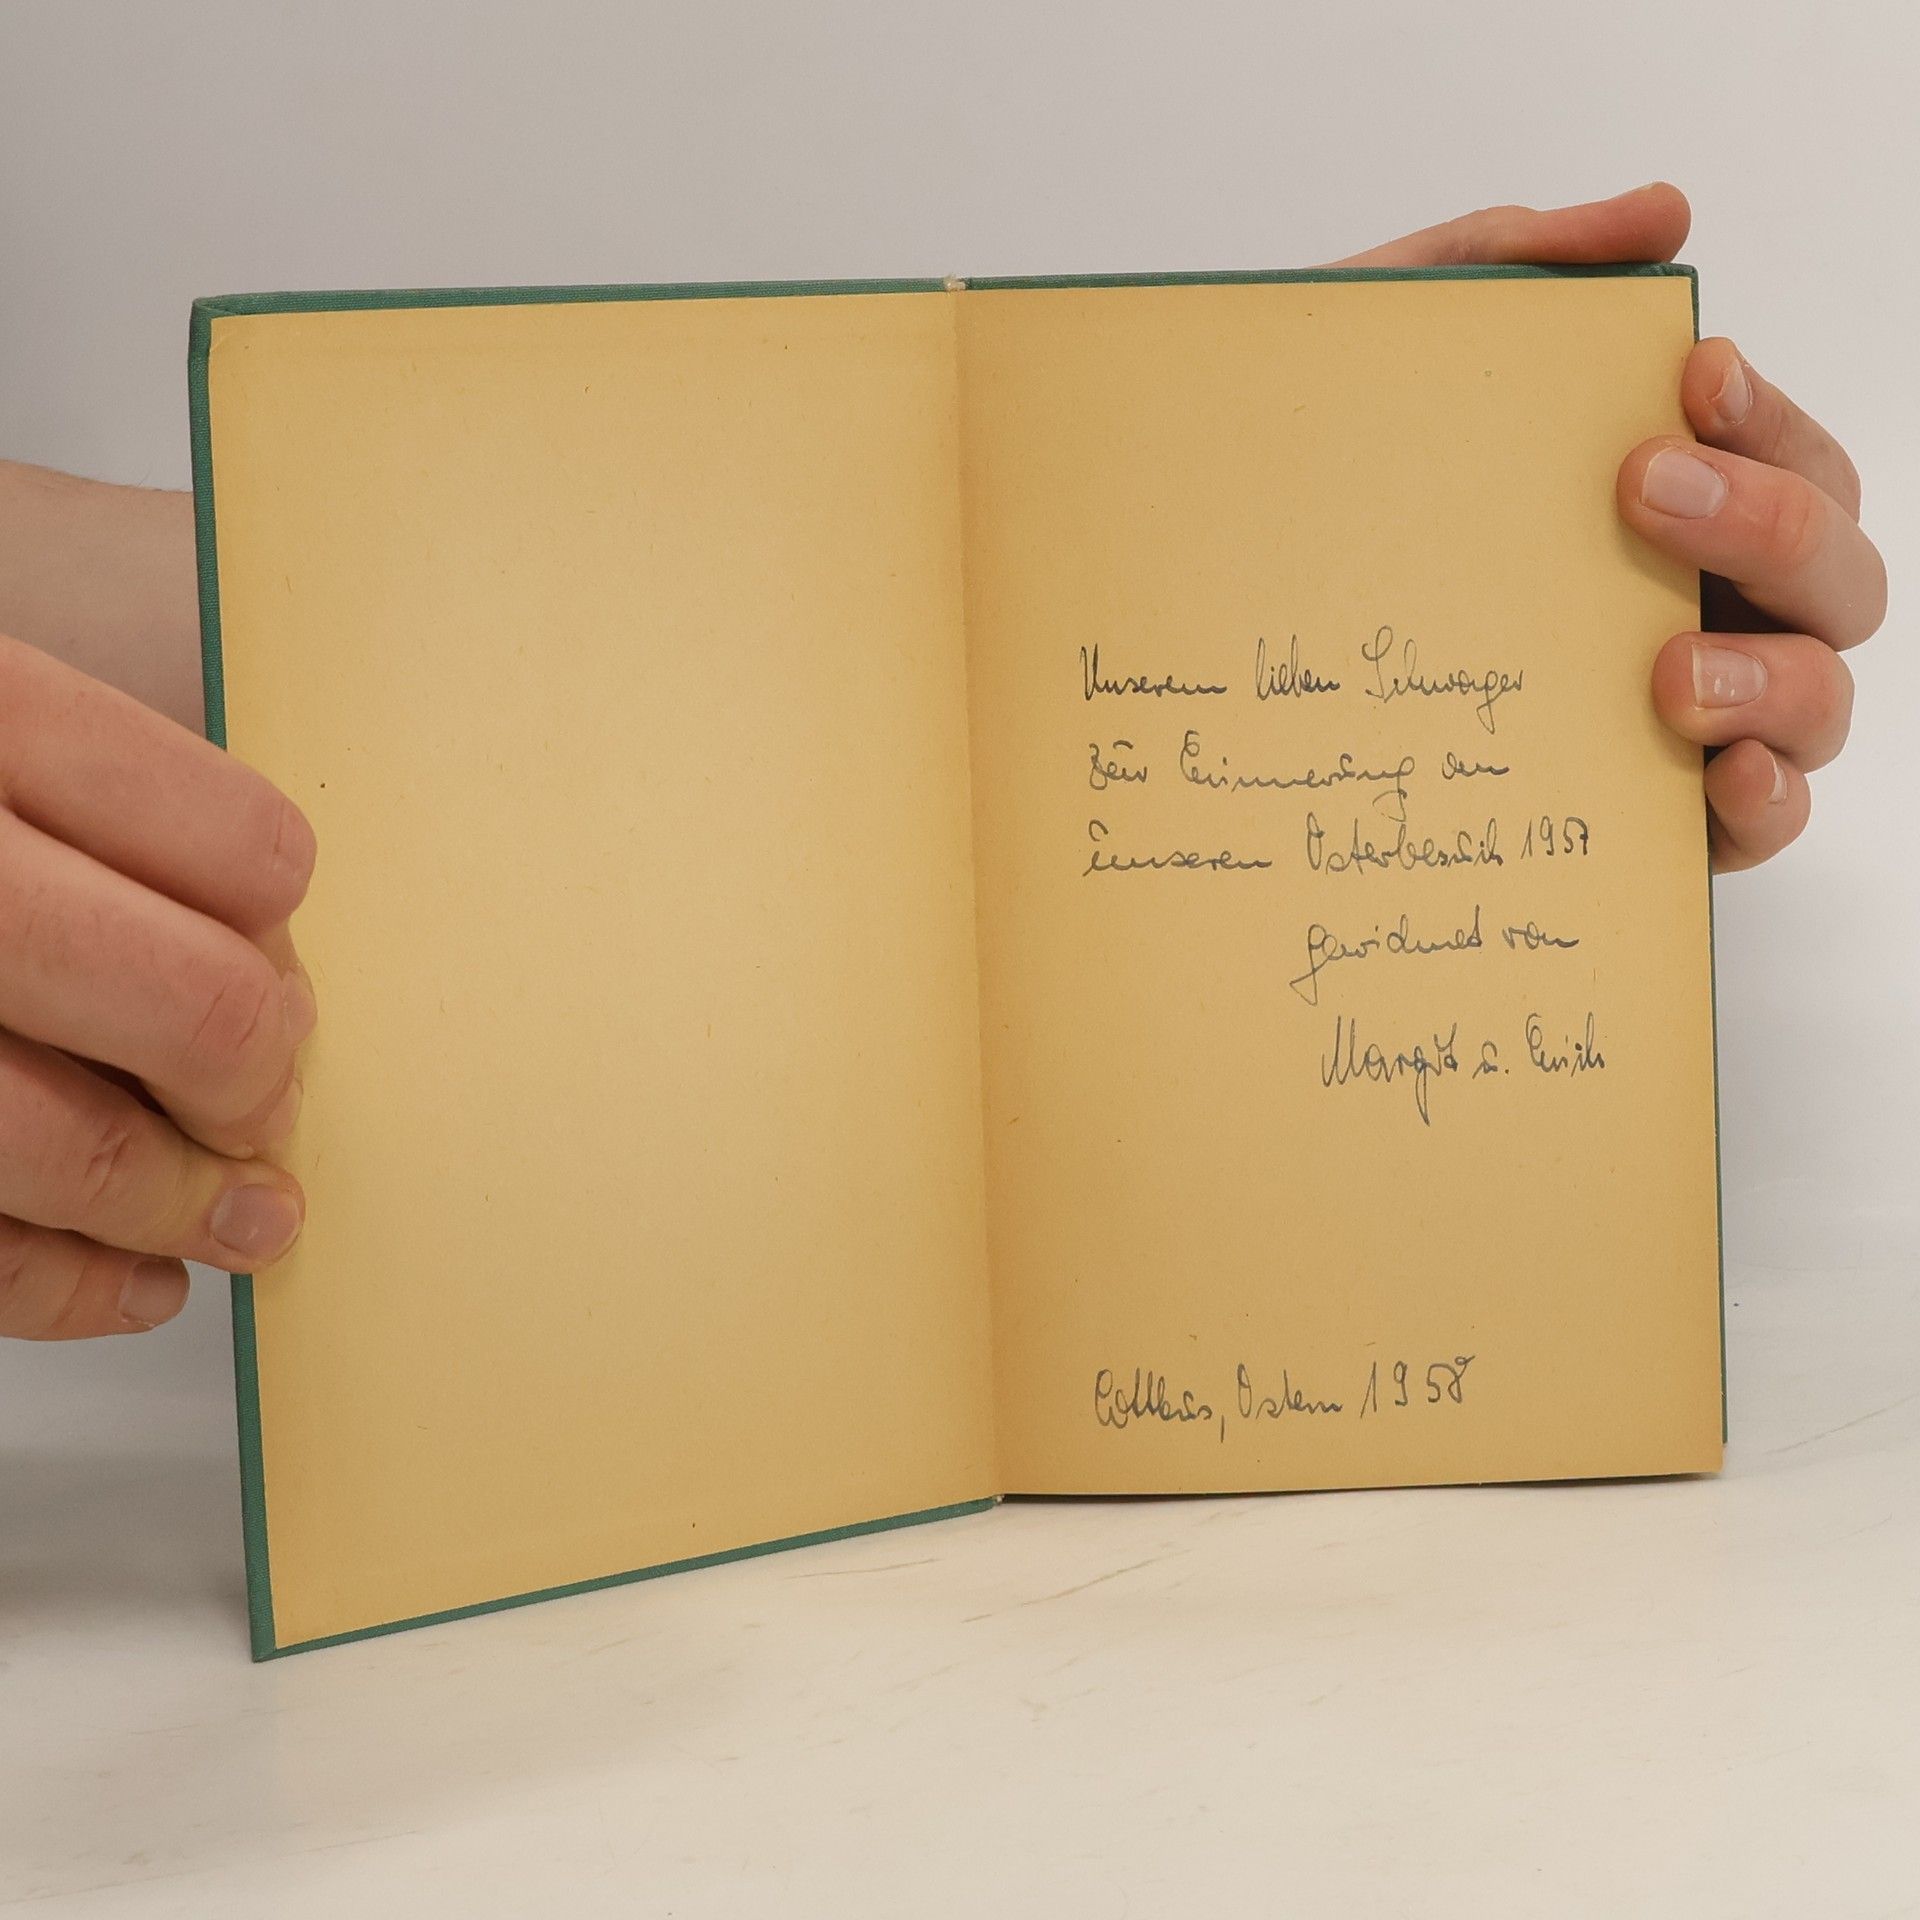 Unserem lieben Schwager
zur Erinnerung an
unseren Osterbesuch 1957
gewidmet von
Margit u. Erich
Cottbus, Ostern 1958